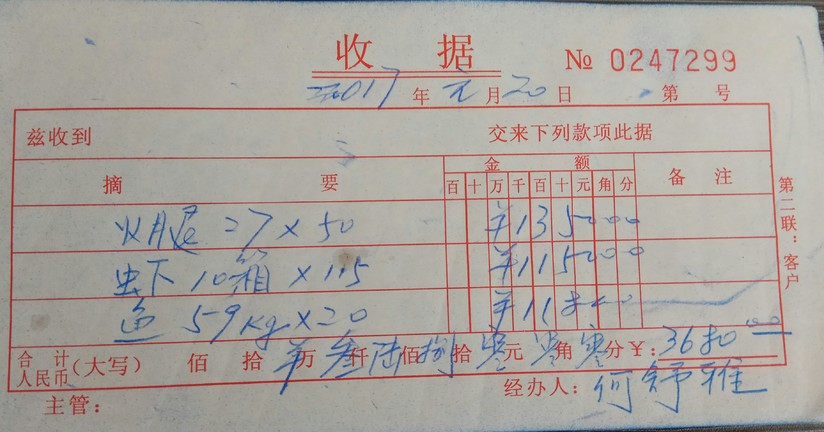 收 据 № 0247299
2017 年 元 月 20 日 第 号
兹收到 交来下列款项此据
摘 要 金 额 备 注
百 十 万 千 百 十 元 角 分
火腿 27×50 ¥135000
虫下 10箱 ×115 ¥115000
鱼 59kg×20 ¥118000
合计人民币(大写) 佰 拾 万 叁仟 陆佰 捌拾 零元 零角 零分 ¥:3680.00
主管: 经办人:何舒雅
第二联:客户